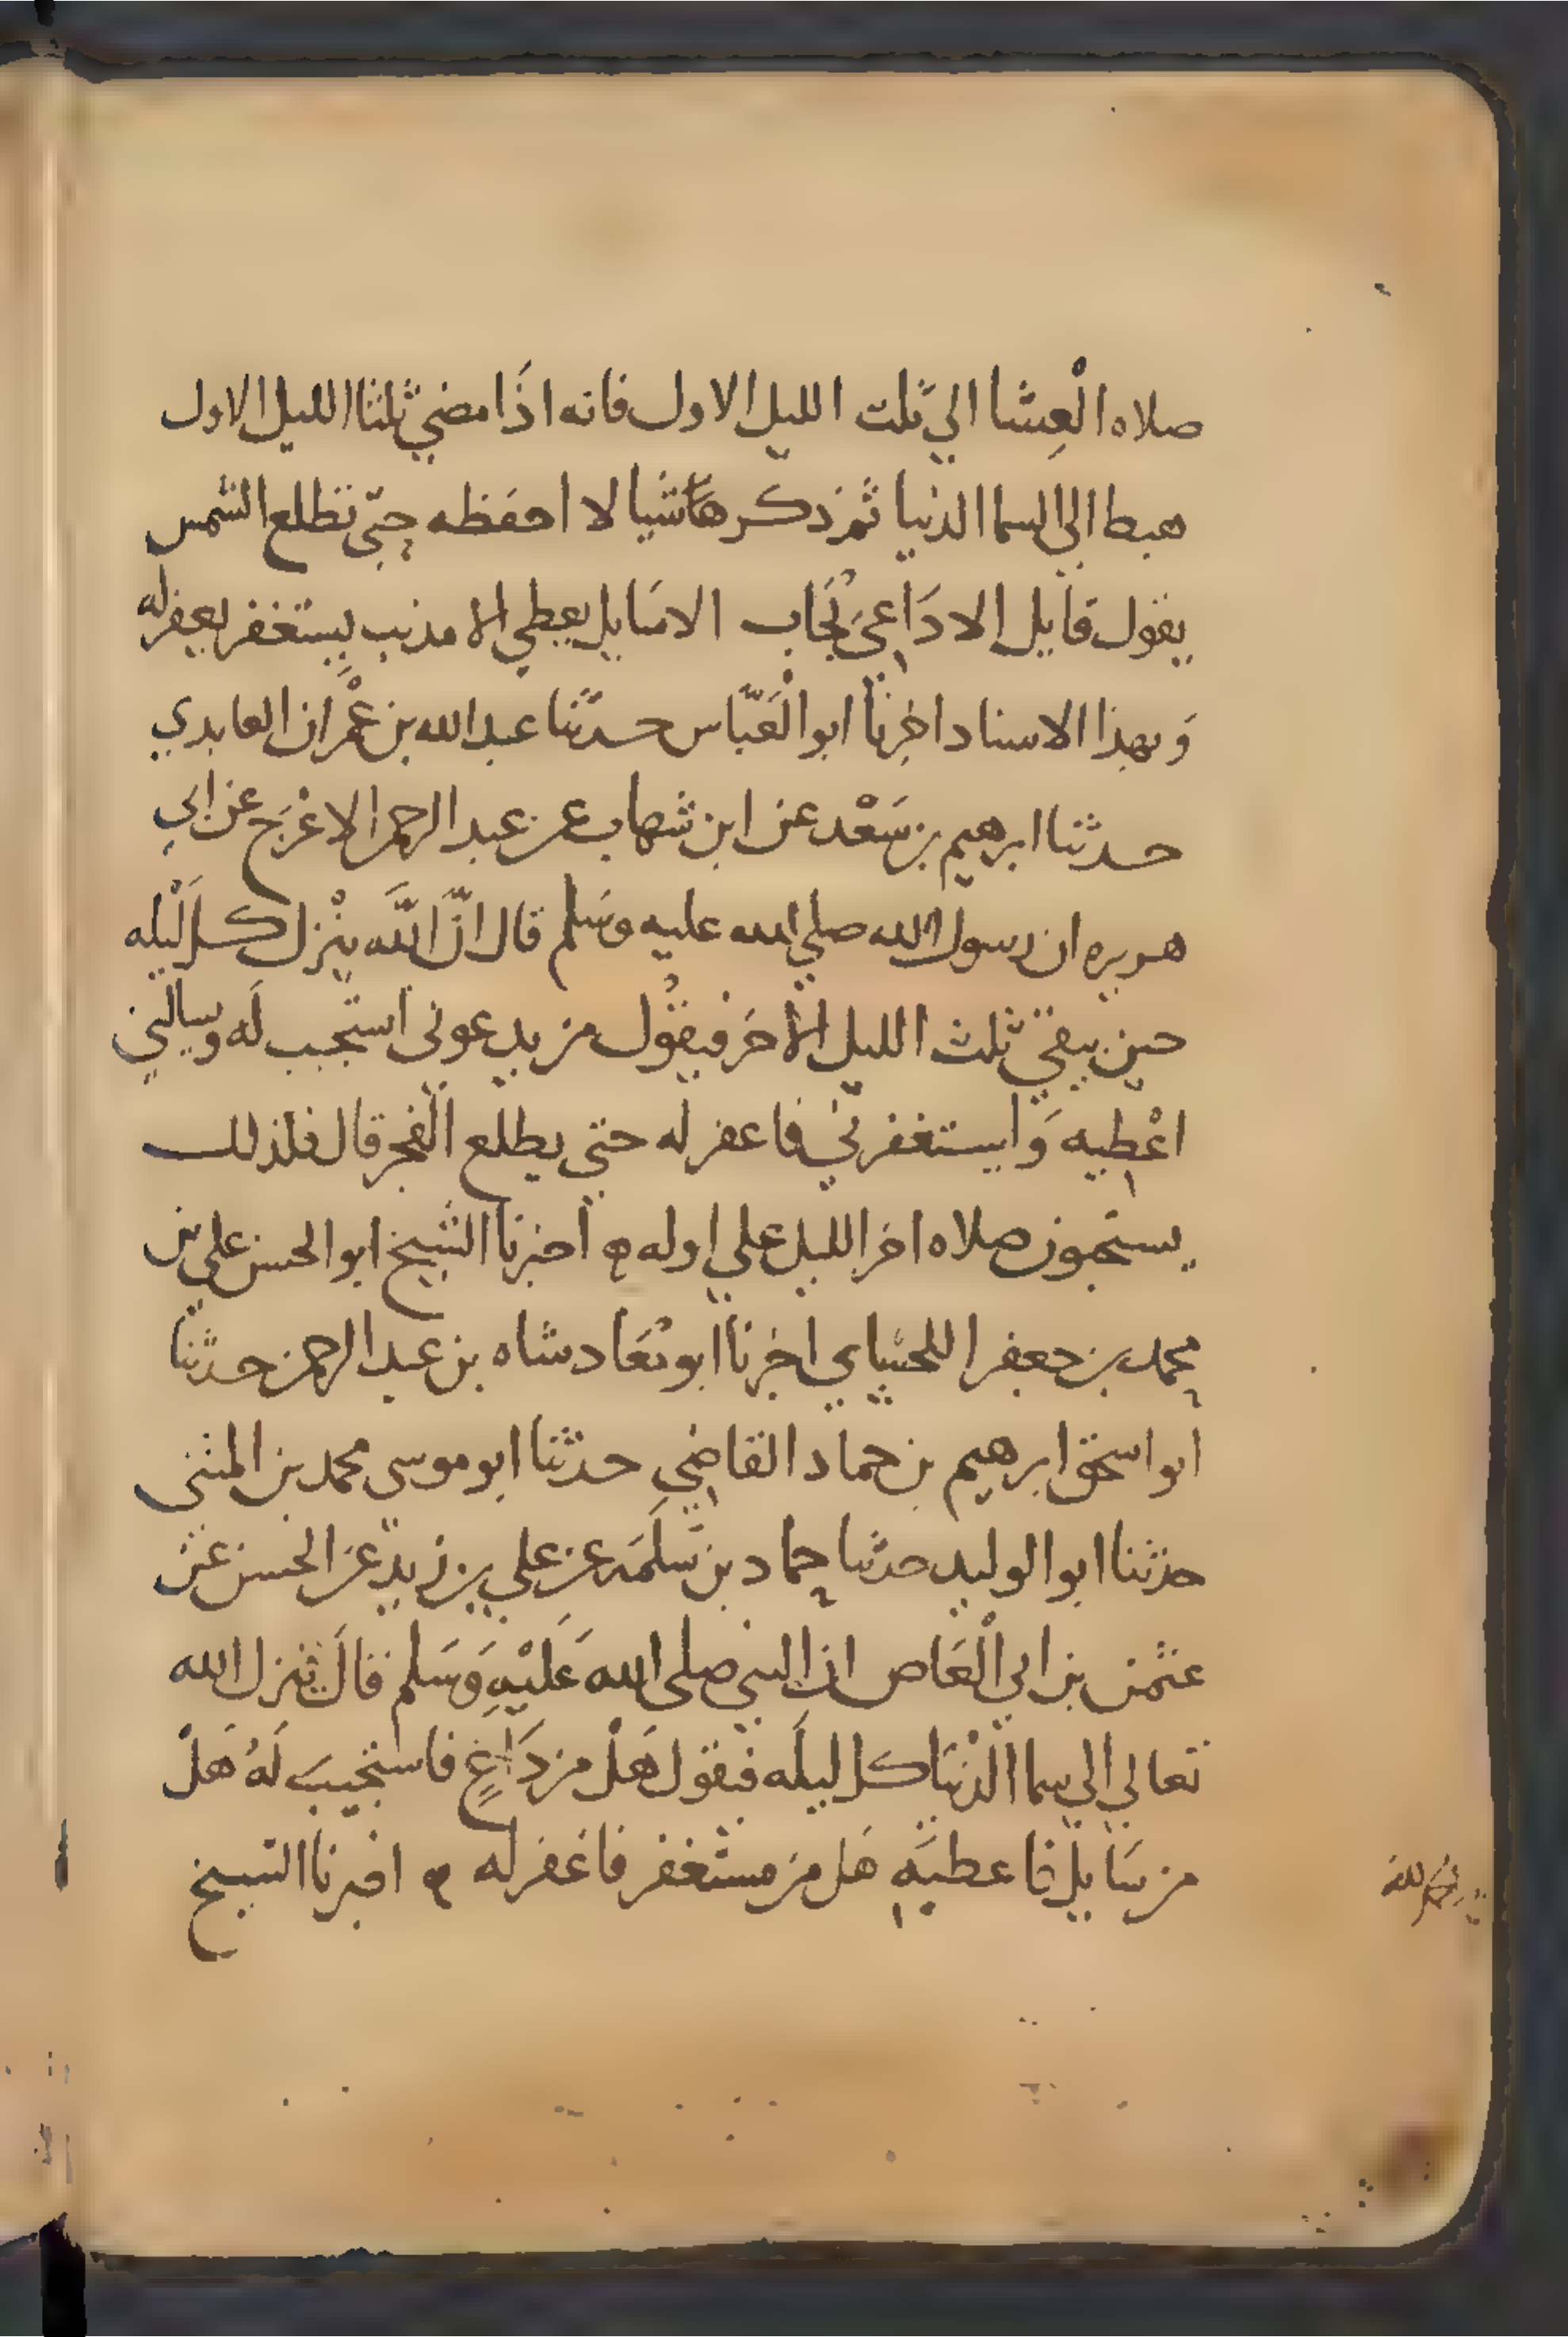 صلاه الْعِشا الي ثلث الليل الاول فانه اذَا مضي ثلثا الليل الاول
هبط الي السما الدنيا ثم ذكر هاشيا لا احفظه حتّي تطلع الشمس
يقول قايل الا دَاعي يُجَاب الا سَايل يعطي الا مذنب يستغفر يغفر له
وَبهذا الاسناد اخبرنا ابو الْعَبّاس حدّثنا عبد الله بن عِمْران العابدي
حدثنا ابرهيم بن سَعْد عن ابن شهاب عن عبد الرحمن الاعْرَج عن ابي
هريره ان رسول الله صلي الله عليه وسَلم قال انّ اللَّه ينْزل كل لَيْله
حين يبقي ثلث الليل الاخَر فيقُول من يدعوني استجب لَه ويسالني
اعْطيه وَايستغفرني فاغفر له حتي يطلع الفجر قال فلذلك
يستحبون صلاه اخر الليل علي اوله ه اخبرنا الشيخ ابو الحسن علي بن
محمد بن جعفر اللحسَاي اخبرنا ابو مُعَاد شاه بن عبد الرحمن حدثنا
ابو اسحق ابرهيم بن حماد القاضي حدثنا ابو موسى محمد بن المثنى
حدثنا ابو الوليد حدثنا حماد بن سَلَمَه عن علي بن زيد عن الحسن عن
عثمن بن ابي الْعَاص ان النبي صلى الله عَلَيْهِ وَسَلم قالَ ينزل الله
تعالي الي سما الدّنْيَا كل ليلَه فيقول هَلْ من دَاعٍ فاستجيبَ لَهُ هَلْ
من سَايل فاعطيَه هَل من مستغفر فاغفر له ه اخبرنا الشيخ